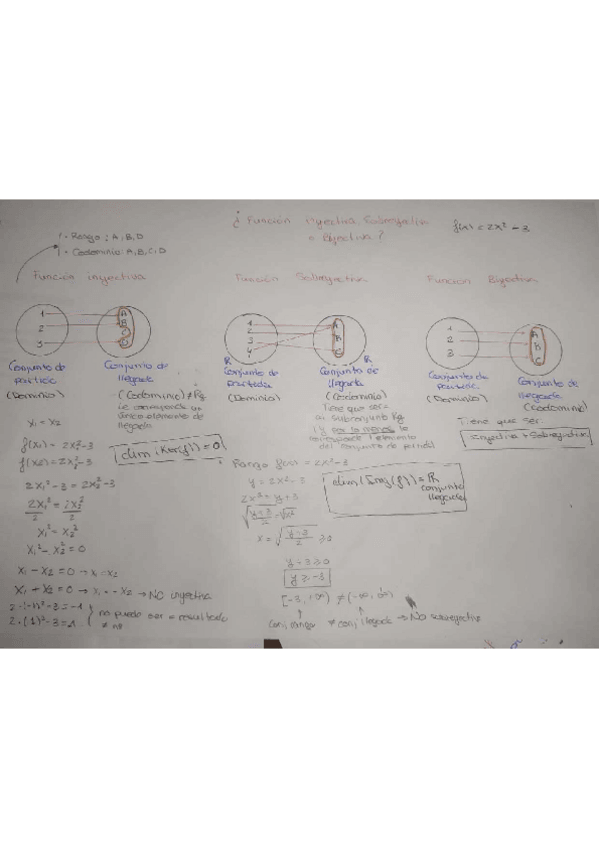 ¿ Función inyectiva, Sobreyectiva
o Biyectiva?
f(x) = 2x² - 3
- Rasgo: A, B, D
- Codominio: A, B, C, D
Función inyectiva
1
2
3
A
B
C
D
Conjunto de
partida
(Dominio)
Conjunto de
llegada
(Codominio) ≠ Rg
le corresponde un
único elemento de
llegada
x₁ = x₂
f(x₁) = 2x₁² - 3
f(x₂) = 2x₂² - 3
dim (Ker(f)) = 0
2x₁² - 3 = 2x₂² - 3
2x₁²/2 = 2x₂²/2
x₁² = x₂²
x₁² - x₂² = 0
x₁ - x₂ = 0 → x₁ = x₂
x₁ + x₂ = 0 → x₁ = - x₂ → NO inyectiva
2·(-1)² - 3 = -1
2·(1)² - 3 = -1
no puede ser = resultado
Función Sobreyectiva
1
2
3
4
A
B
C
R
R
Conjunto de
partida
(Dominio)
Conjunto de
llegada
(Codominio)
Tiene que ser =
al subconjunto Rg
y por lo menos le
corresponde 1 elemento
del conjunto de partida
Rango f(x) = 2x² - 3
y = 2x² - 3
2x² = y + 3
dim (Img(f)) = R
conjunto
llegada
x = √ y - 3 / 2 ≥ 0
y + 3 ≥ 0
y ≥ -3
[-3, +∞) ≠ (-∞, ∞)
conj. rango ≠ conj llegada → NO sobreyectiva
Función Biyectiva
1
2
3
A
B
C
Conjunto de
partida
(Dominio)
Conjunto de
llegada
(Codominio)
Tiene que ser:
Inyectiva + Sobreyectiva